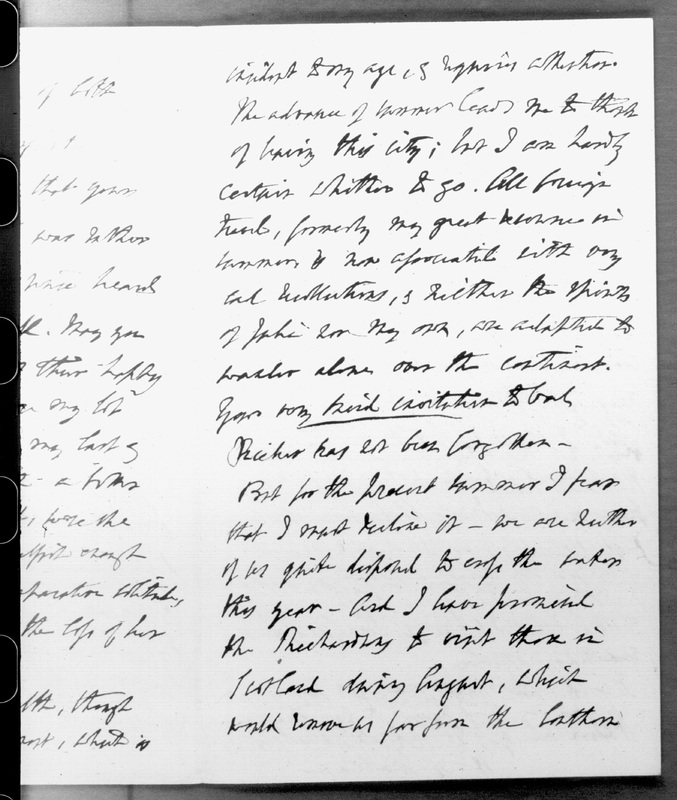 of both
that yours
was rather
since heard
May you
their happy
my lot
may last &
a
were the
enough
comparative solitude,
the loss of her
though
most, which is
incident to my age, & requires attention.
The advance of summer leads me to think
of leaving this city; but I am hardly
certain whither to go. All foreign
travel, formerly my great resource in
summer, is now associated with very
sad recollections, & neither the spirits
of Julia nor my own, are adapted to
wander alone over the continent.
Your very kind invitation to
has not been forgotten –
But for the present summer I fear
that I must decline it – we are neither
of us quite disposed to cross the water
this year – And I have promised
the Richardsons to visit them in
Scotland during August, which
would remove us far from the Southern